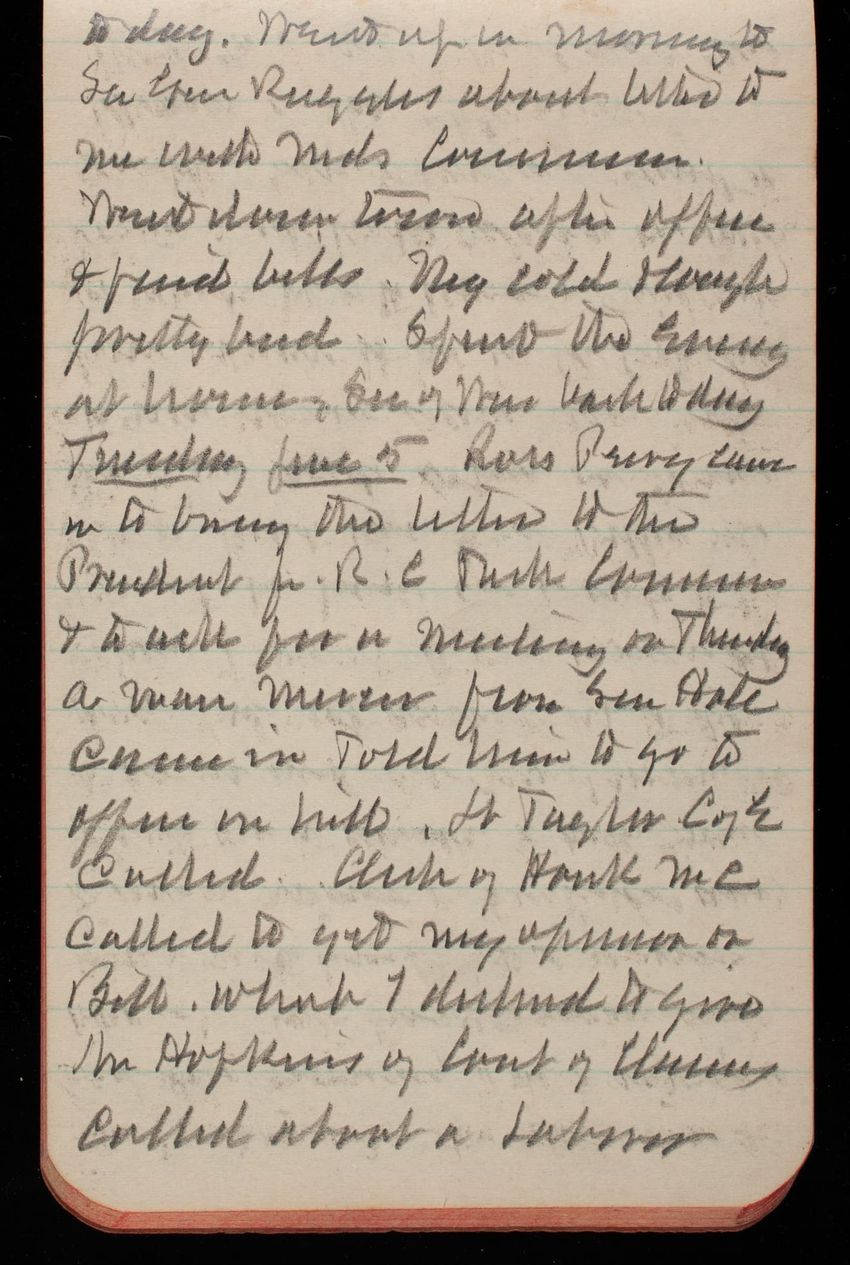 today. Went up in morning to
See Genl Ruggles about letter to
me with Meds Common.
Went down town after office
& paid bills. My cold & cough
pretty bad. Spent the Evening
at home, Secy War back today
Tuesday June 5. Ross Perry came
in to bring the letter to the
President fr. R. C Park Common
& to ask for a meeting on Thursday
A man from Sen Hale
Came in Told him to go to
office on hill. Lt Taylor Cog E
Called. Clerk of Houk MC
Called to get my opinion on
Bill. which I declined to give
Mr Hopkins of Court of Claims
Called about a Laborer